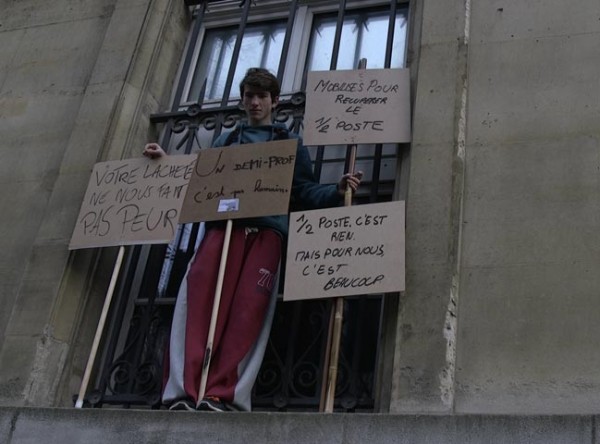 VOTRE LACHETE
NE NOUS FAIT
PAS PEUR
UN DEMI-PROF
c'est pas humain.
MOBILISÉS POUR
RECUPERER
LE
1/2 POSTE
1/2 POSTE, C'EST
RIEN.
MAIS POUR NOUS,
C'EST
BEAUCOUP